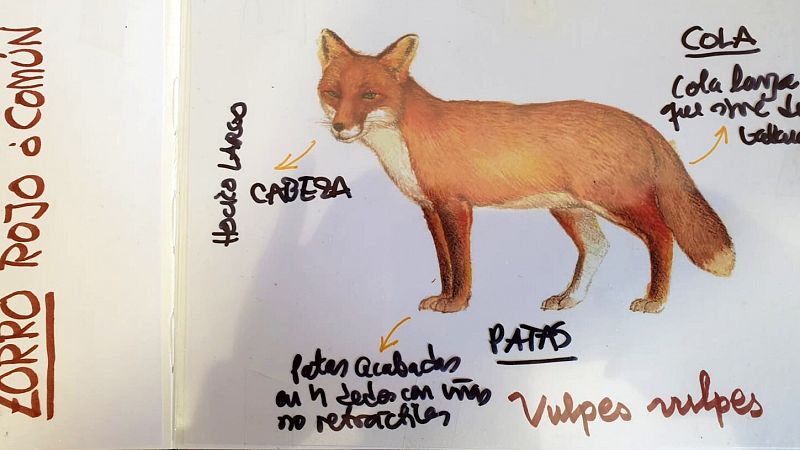 ZORRO ROJO ó COMÚN
HOCICO LARGO
CABEZA
COLA
Cola larga
que sirve de
PATAS
Patas acabadas
en 4 dedos con uñas
no retráctiles
Vulpes vulpes